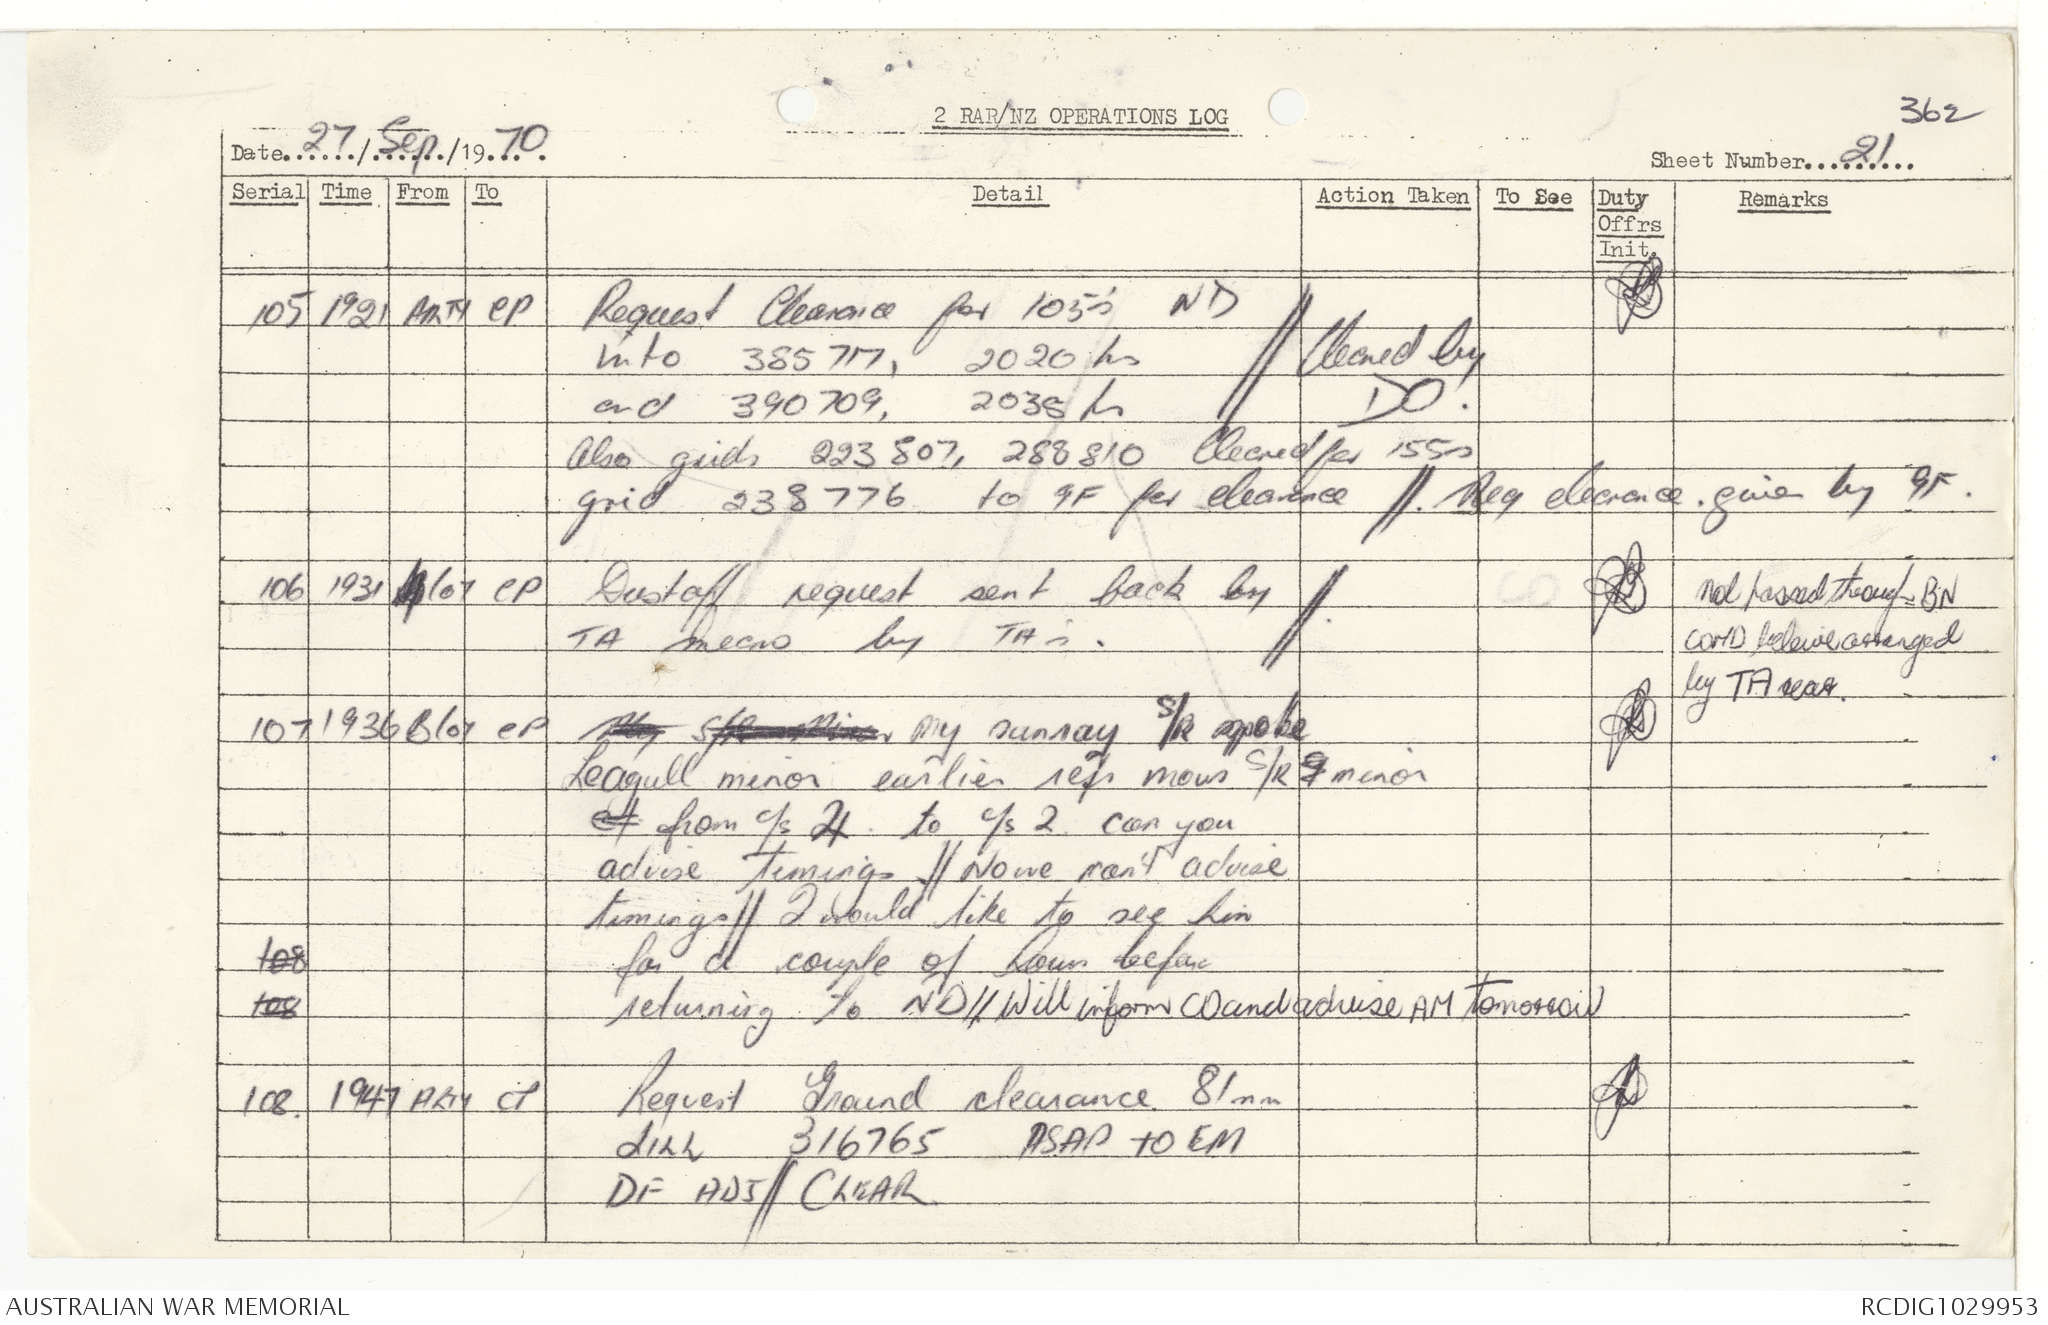 362
2 RAR/NZ OPERATIONS LOG
Date 27/Sep/1970.
Sheet Number 21
Serial Time From To Detail Action Taken To See Duty Offrs Init. Remarks
105 1921 ARTY CP Request Clearance for 105's ND
into 385717, 2020 hrs // Cleared by
and 390709, 2035 hrs DO.
Also grids 223807, 288810 Cleared for 155s
grid 238776 to 9F for clearance // Req clearance. given by 9F.
106 1931 B/07 CP Dustoff request sent back by //.
TA means by TA's.
Not passed through BN
COMD believe arranged
by TA rear.
107 1936 B/07 CP My sunray S/R spoke
Seagull minor earlier refs S/R minor
from c/s 4. to c/s 2. can you
advise timings // No we can't advise
timings // I would like to see him
108 for a couple of hours before
108 returning to ND // Will inform CO and advise AM tomorrow
108. 1947 ARTY CP Request Ground clearance 81mm
ILL 316765 ASAP TO EM
DF ADJ // CLEAR
AUSTRALIAN WAR MEMORIAL
RCDIG1029953